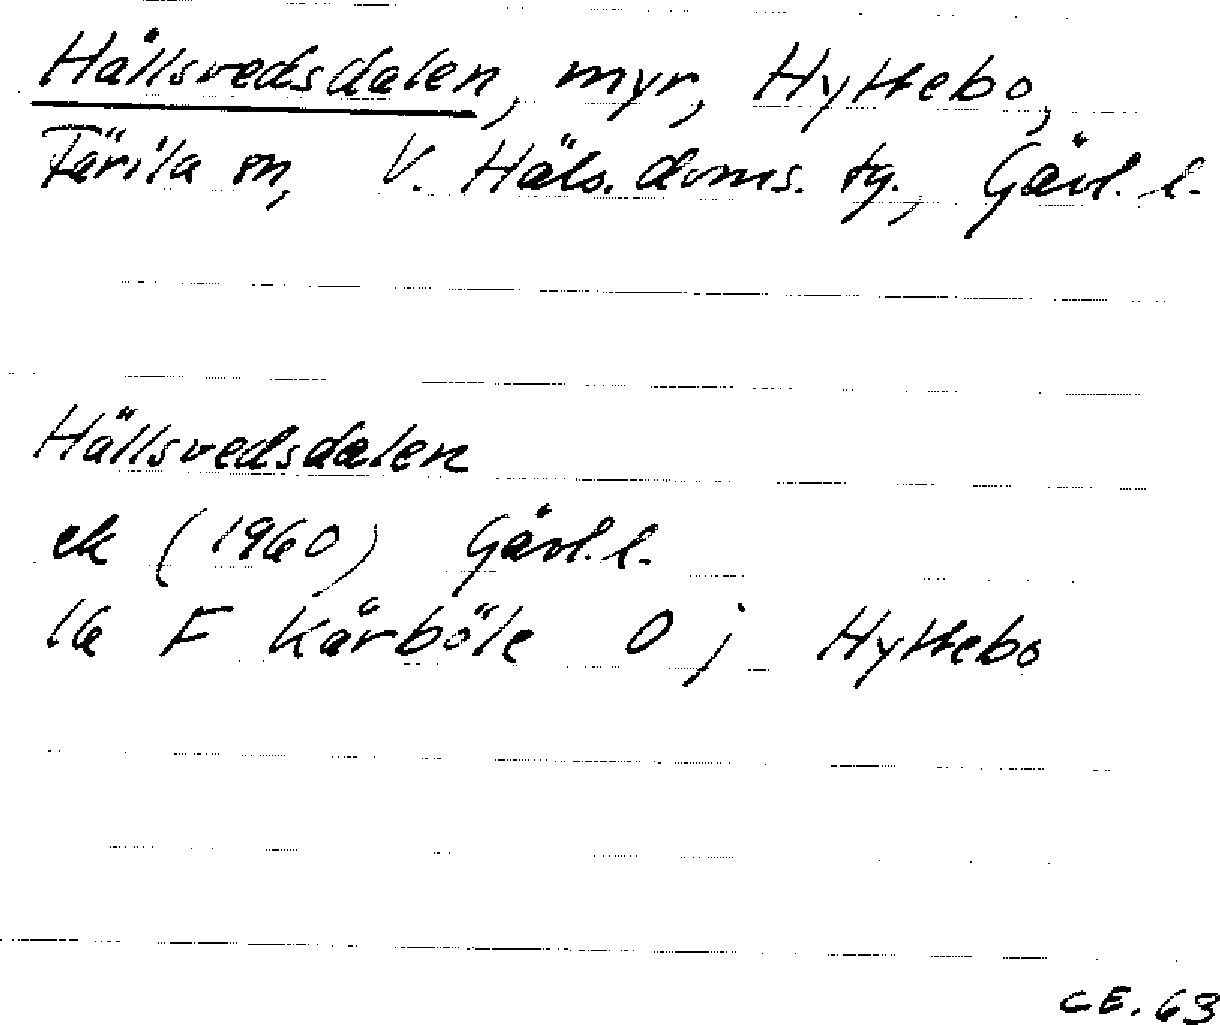 Hållsvedsdalen, myr, Hyttebo,
Färila sn, V. Häls. doms. tg., Gävl. l.
Hällsvedsdalen
ek (1960) Gävl. l.
16 F Kårböle O j Hyttebo
CE. 63